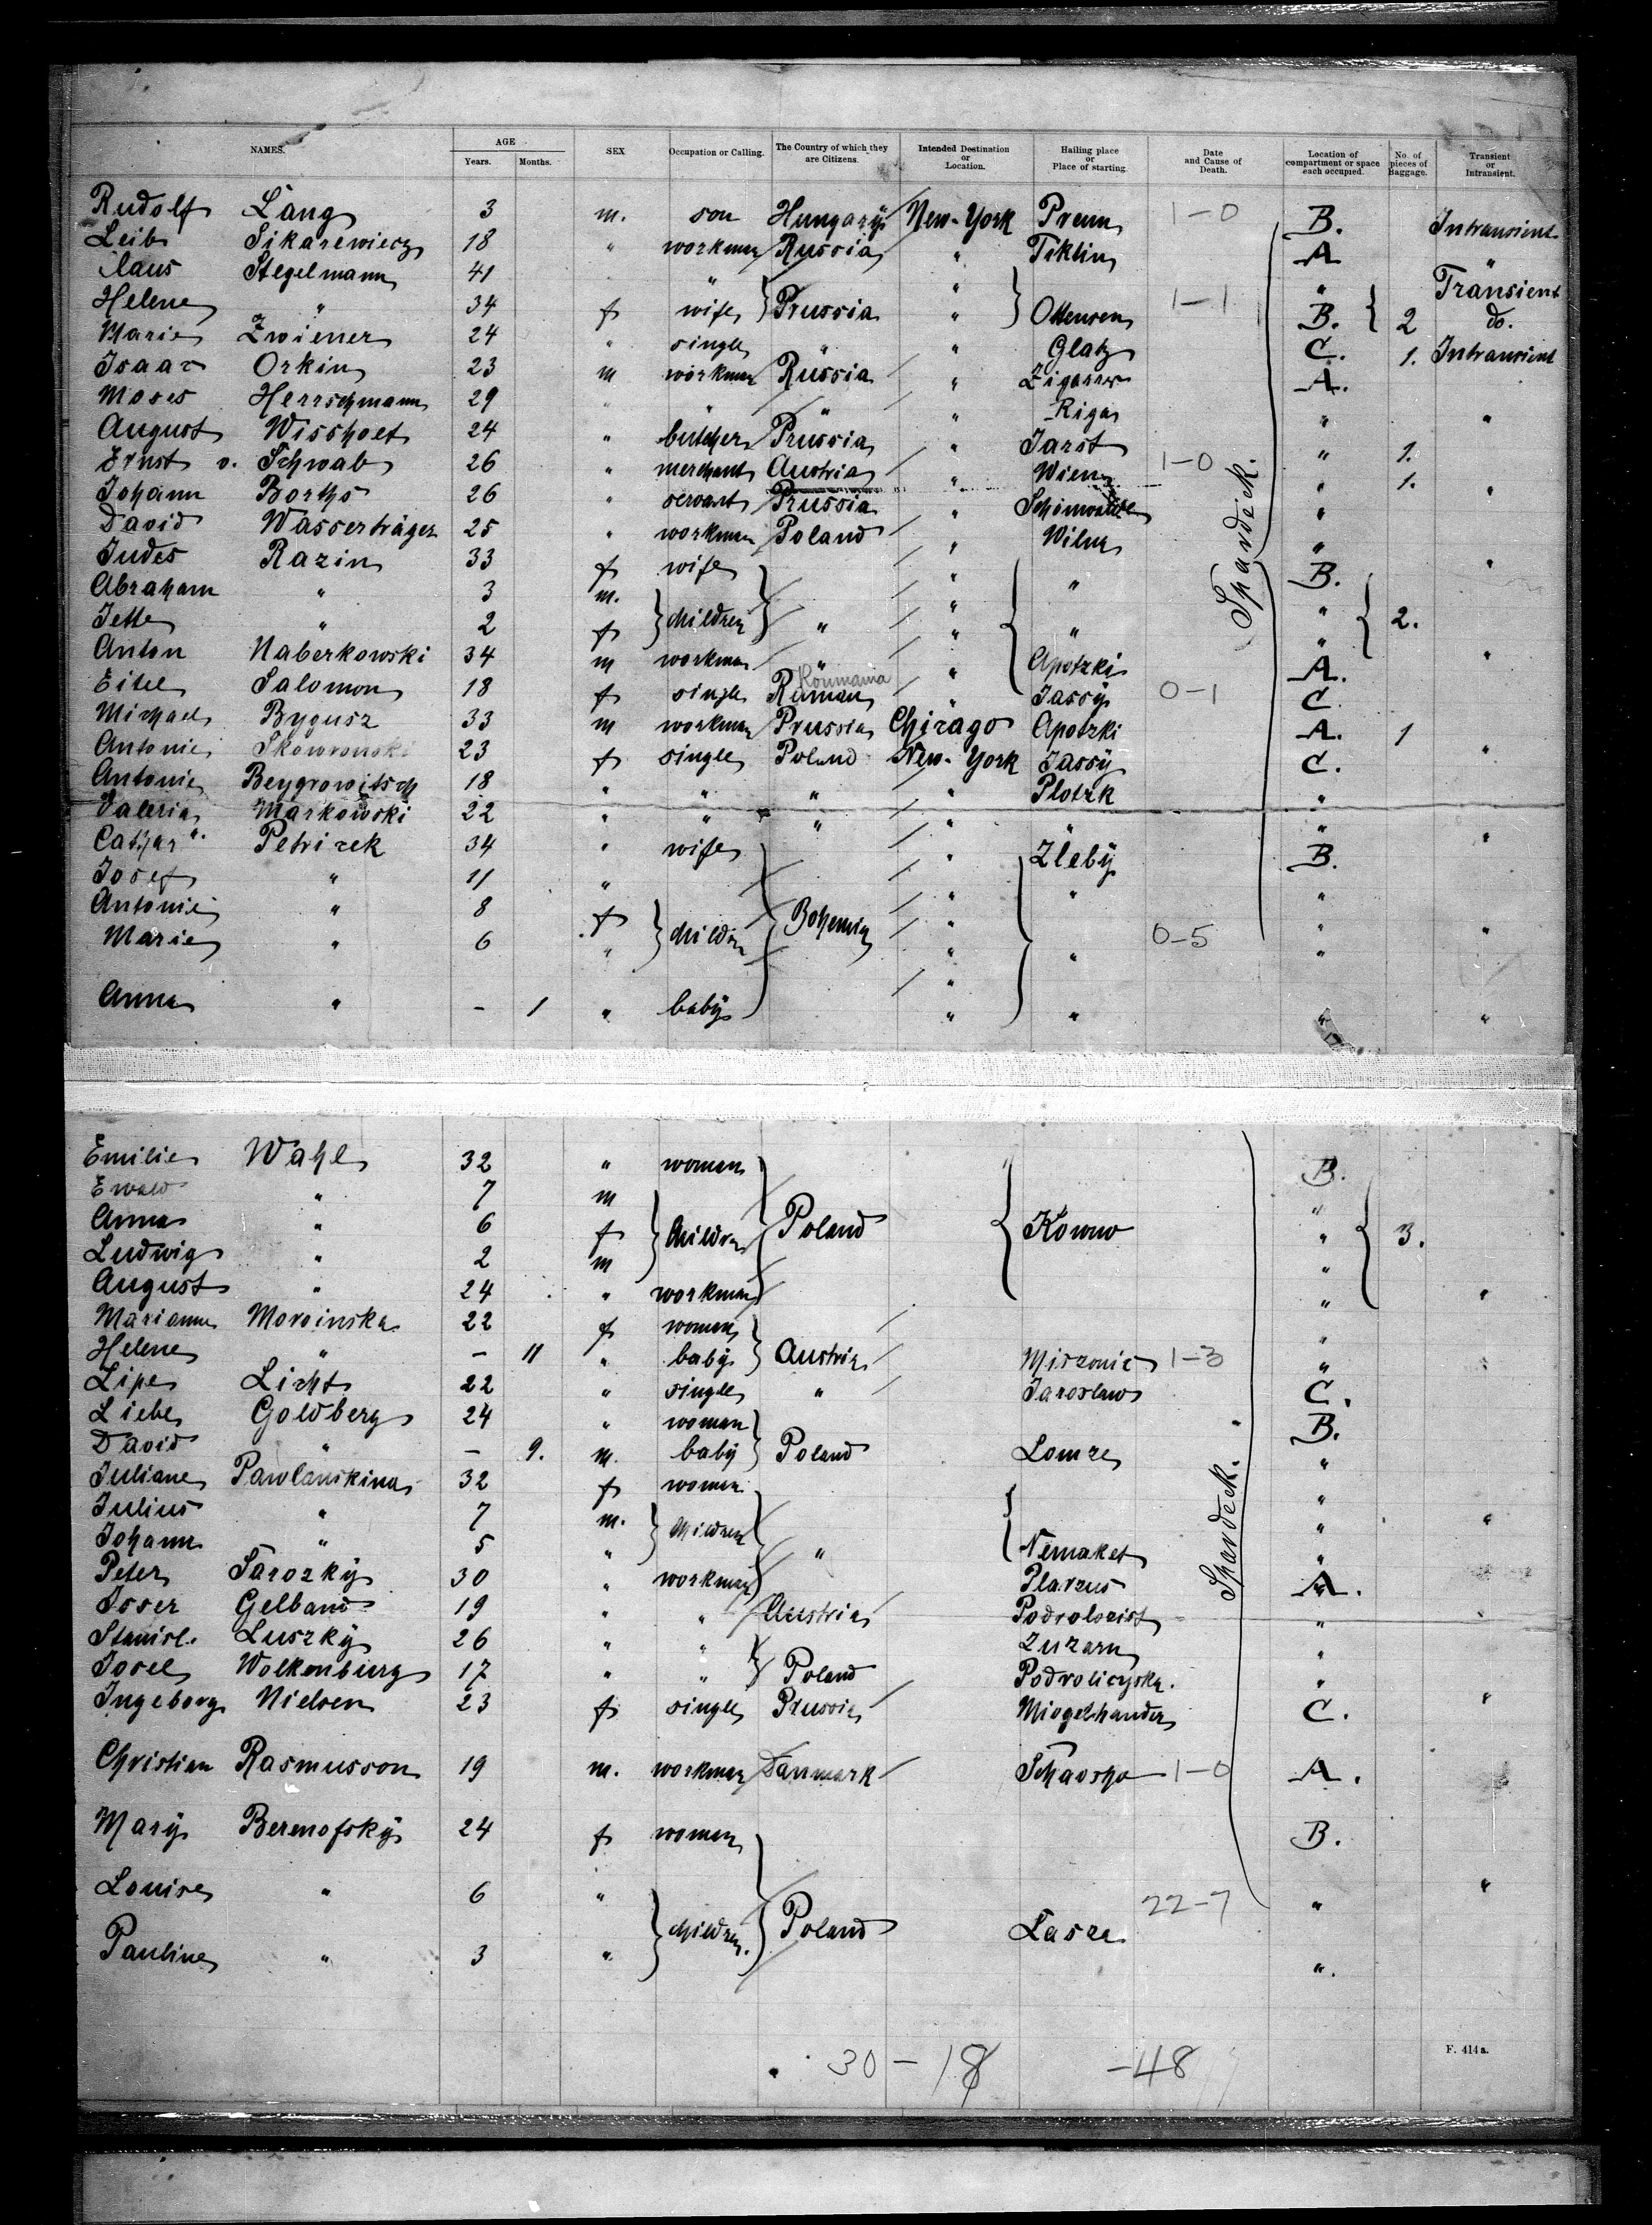 NAMES. AGE Years. Months. SEX Occupation or Calling. The Country of which they are Citizens. Intended Destination or Location. Hailing place or Place of starting. Date and Cause of Death. Location of compartment or space each occupied. No. of pieces of Baggage. Transient or Intransient.
Rudolf Lang 3 m. son Hungary New-York Prenn 1-0 B. Intransient
Leib Sikarewiecz 18 " workman Russia " Tiktin A "
Claus Stegelmann 41 " " " Transient
Helene " 34 f wife Prussia " Ottensen 1-1 B. 2 do.
Marie Zwiener 24 " single " " Glatz C. 1. Intransient
Isaac Orkin 23 m workman Russia " A.
Moses Herrschmann 29 " " " " Riga " "
August Wisshoet 24 " butcher Prussia " Jarst " 1.
Ernst v. Schwab 26 " merchant Austria " Wien 1-0 " 1.
Johann Borchs 26 " servant Prussia " " "
David Wasserträger 25 " workman Poland " Wilna "
Judes Razin 33 f wife " " B. "
Abraham " 3 m. " "
Jette " 2 f children " " " " 2.
Anton Naberkowski 34 m workman " " Apotzki A. "
Eitel Salomon 18 f single Ruman Roumania " Jassy 0-1 C
Michael Bygusz 33 m workman Prussia Chicago Apotzki A. 1
Antonie Skowronski 23 f single Poland New-York Jassy C. "
Antonie Beygrowitsch 18 " " " " Plotzk "
Valeria Markowski 22 " " " " " "
Cathar". Petricek 34 " wife " Zleby B. "
Josef " 11 " " " "
Antonie " 8 f Bohemia " "
Marie " 6 " children " " 0-5 " "
Anna " - 1 " baby " " " "
Spardeck.
Emilie Wahl 32 " woman B.
Ewald " 7 m "
Anna " 6 f children Poland Kowno " 3.
Ludwig " 2 m "
August " 24 " workman " "
Marianne Moroinska 22 f woman "
Helene " - 11 " baby Austria Miszonic 1-3 " "
Lipe Licht 22 " single " Jaroslaw C.
Liebe Goldberg 24 " woman B.
David " - 9. m. baby Poland Lomze "
Juliane Pawlanskina 32 f woman "
Julius " 7 m. children " "
Johann " 5 " " Nemaket "
Peter Sarozky 30 " workman Plarzus A.
Joser Gelband 19 " " Austria "
Stanisl. Luszky 26 " " Zuzarn "
Josel Wolkenburg 17 " " Poland Podroliczyska. "
Ingeborg Nielsen 23 f single Prussia Miogelshander C. "
Christian Rasmusson 19 m. workman Danmark 1-0 A.
Mary Beremofsky 24 f woman B.
Louise " 6 " 22-7 " "
Pauline " 3 " children. Poland Lasze ".
Spardeck.
30-18 -48
F. 414a.